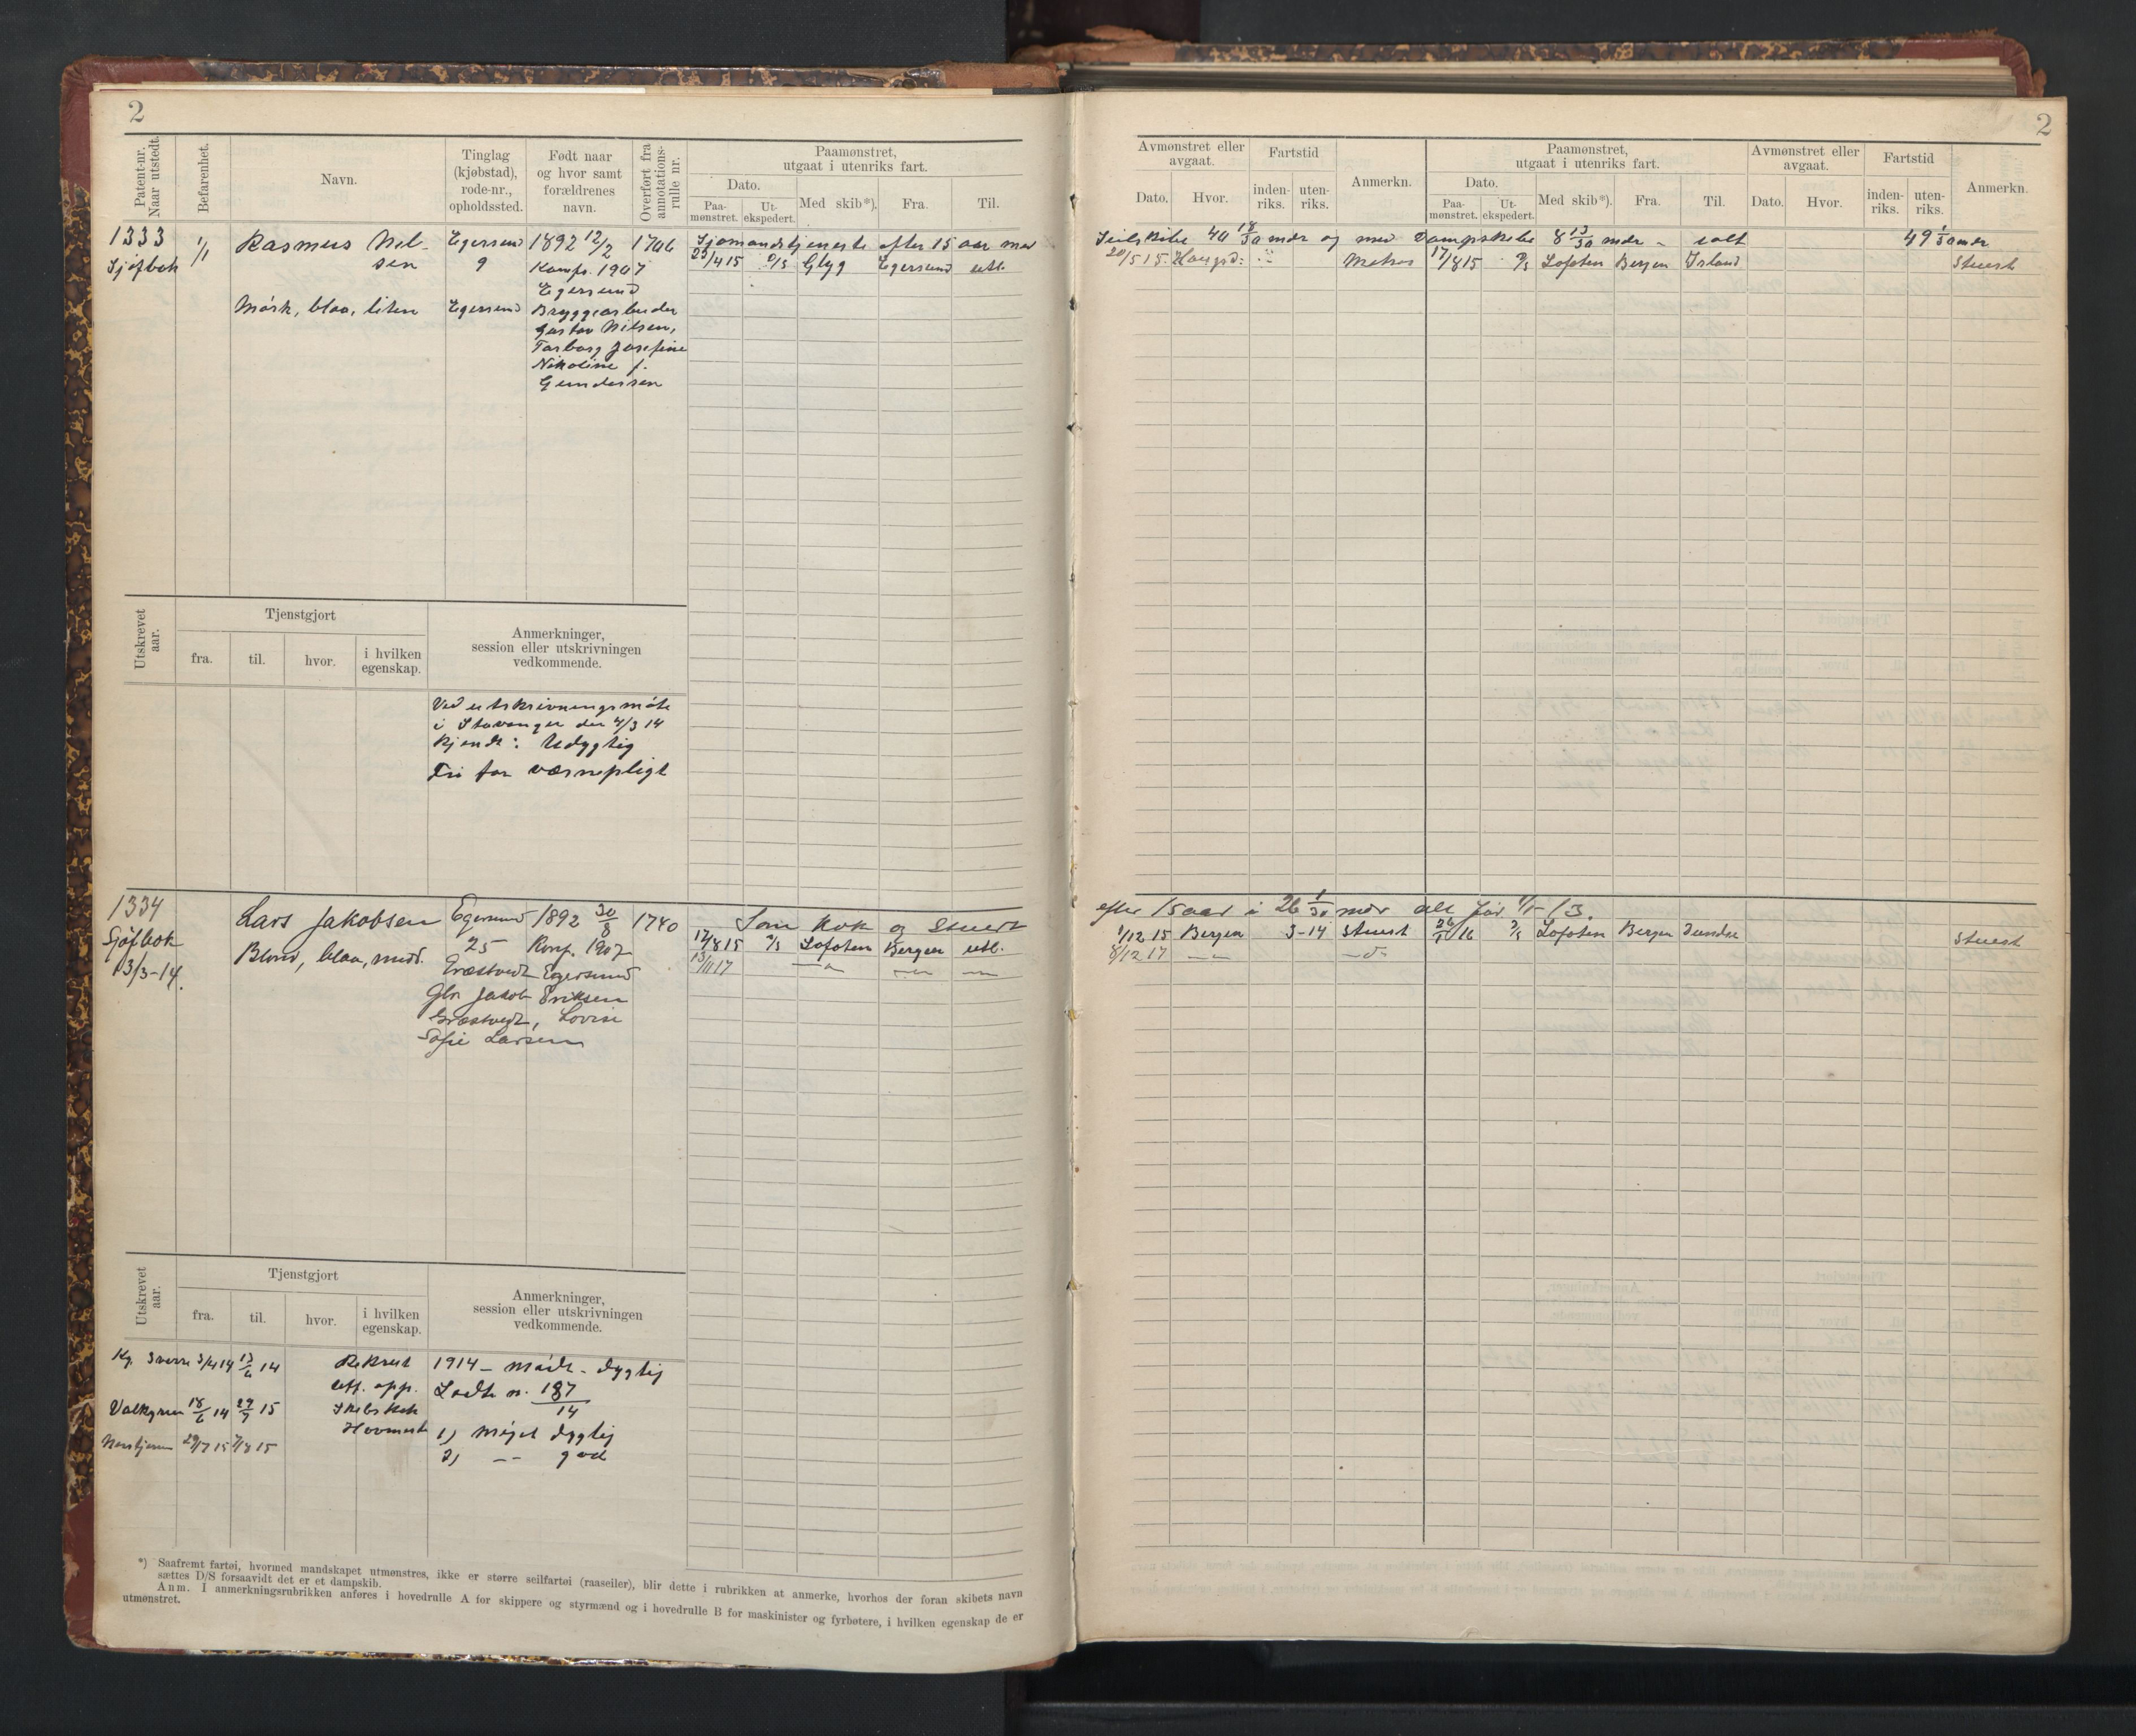 2
Patent-nr. Naar utstedt.
Befarenhet.
Navn.
Tinglag (kjøbstad), rode-nr., opholdssted.
Født naar og hvor samt forældrenes navn.
Overført fra annotations-rulle nr.
Paamønstret, utgaat i utenriks fart.
Dato.
Paa-mønstret.
Ut-ekspedert.
Med skib*).
Fra.
Til.
1333
Sjøfbok
1/1
Rasmus Nil-
sen
Mørk, blaa, liten
Egersund
9
Egersund
1892 12/2
Konf. 1907
Egersund
Bryggearbeider
Gustav Nilsen,
Torborg Josefine
Nikoline f.
Gundersen
1706
Sjømandstjeneste efter 15 aar med
25/4 15 D/S Glyg Egersund utl.
Utskrevet aar.
Tjenstgjort
fra.
til.
hvor.
i hvilken egenskap.
Anmerkninger,
session eller utskrivningen
vedkommende.
Ved utskrivningsmøte
i Stavanger den 4/3 14
kjendt: Udygtig
Fri for værnepligt
1334
Sjøfbok
13/3-14.
Lars Jakobsen
Blond, blaa, midd.
Egersund
25
1892 30/8
Konf. 1907
Græstvedt Egersund
Gbr Jakob Eriksen
Græstvedt, Lovise
Sofie Larsen
1740
Som Kok og Stuert
17/8 15 D/S Lofoten Bergen utl.
13/11 17 —"— —"— —"—
Utskrevet aar.
Tjenstgjort
fra.
til.
hvor.
i hvilken egenskap.
Anmerkninger,
session eller utskrivningen
vedkommende.
Kg. Sverre 3/4 14 13/6 14 Rekrut
off. opp.
Valkyrien 18/6 14 29/7 15 Skibskok
29/7 15 7/8 15 Hovmest
1914 - mødt - dygtig
Lodtn. 187/14
1) Meget dygtig
2) —"— god
*) Saafremt fartøi, hvormed mandskapet utmønstres, ikke er større seilfartøi (raaseiler), blir dette i rubrikken at anmerke, hvorhos der foran skibets navn
sættes D/S forsaavidt det er et dampskib.
Anm. I anmerkningsrubrikken anføres i hovedrulle A for skippere og styrmænd og i hovedrulle B for maskinister og fyrbøtere, i hvilken egenskap de er
utmønstret.
2
Avmønstret eller avgaat.
Dato.
Hvor.
Fartstid
inden-riks.
uten-riks.
Anmerkn.
Paamønstret, utgaat i utenriks fart.
Dato.
Paa-mønstret.
Ut-ekspedert.
Med skib*).
Fra.
Til.
Avmønstret eller avgaat.
Dato.
Hvor.
Fartstid
inden-riks.
uten-riks.
Anmerkn.
Seilskibe 40 18/30 mdr og med Dampskibe 8 13/30 mdr - ialt 49 1/30 mdr
20/5 15. Haugsd: Matros 17/8 15 D/S Lofoten Bergen Island Stuert
efter 15 aar i 26 1/30 mdr alt før 1/1-13.
1/12 15 Bergen 3-14 Stuert D/S Lofoten Bergen Stuert
8/12 17 —"— —d—